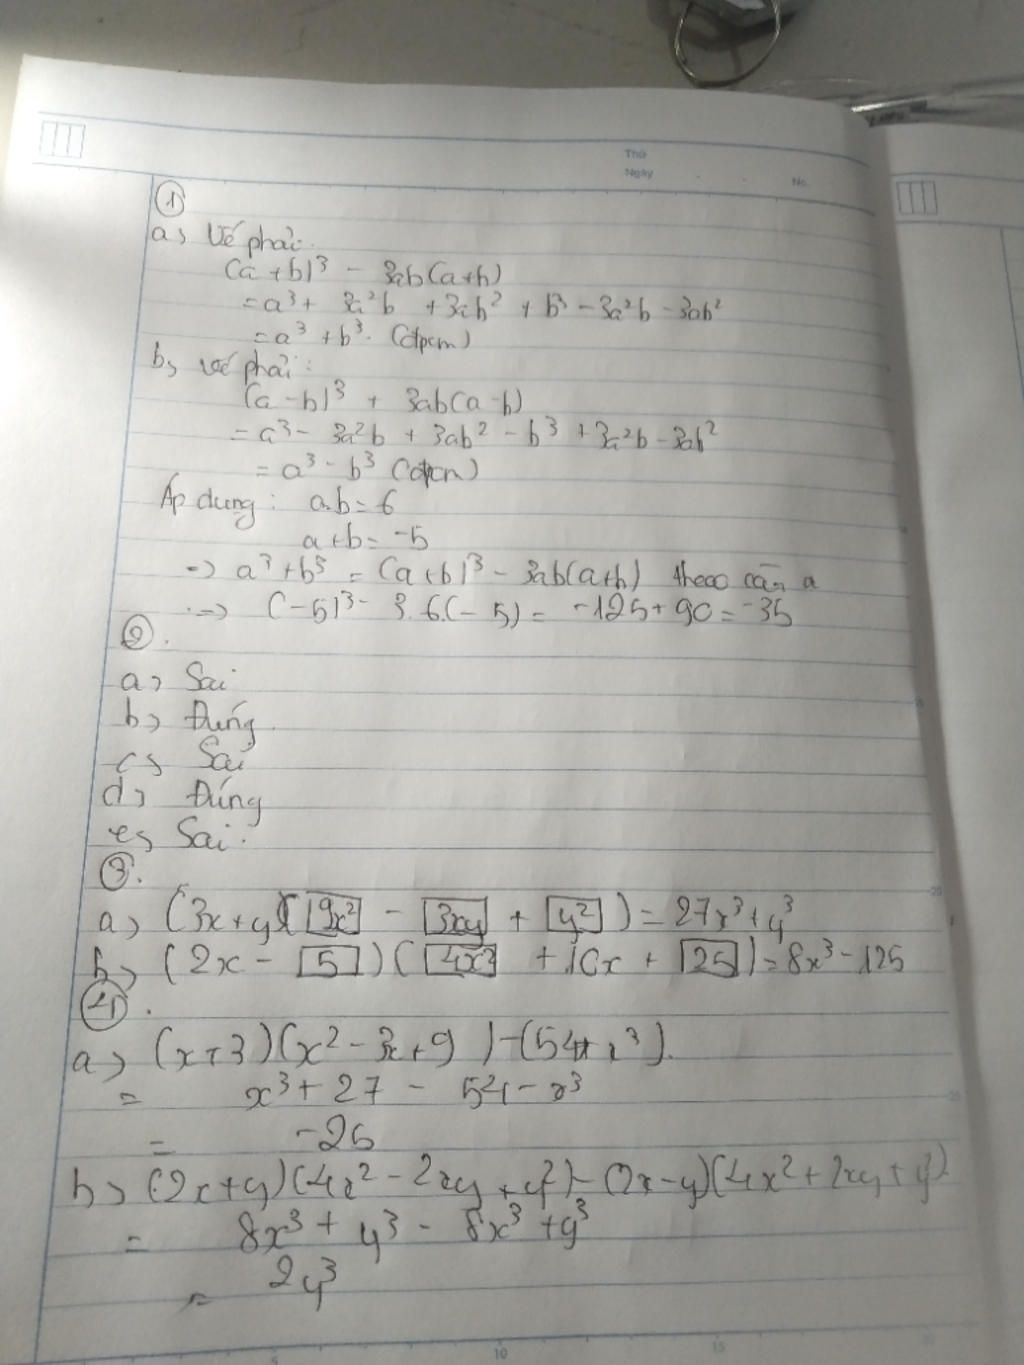 Thứ
Ngày
No.
①
a, Vế phải:
(a + b)³ - 3ab(a+b)
= a³ + 3a²b + 3ab² + b³ - 3a²b - 3ab²
= a³ + b³. (đpcm)
b, Vế phải:
(a - b)³ + 3ab(a-b)
= a³ - 3a²b + 3ab² - b³ + 3a²b - 3ab²
= a³ - b³ (đpcm)
Áp dụng: a.b = 6
a+b = -5
=> a³ + b³ = (a+b)³ - 3ab(a+b) theo câu a
=> (-5)³ - 3.6.(-5) = -125 + 90 = -35
②.
a, Sai
b, Đúng
c, Sai
d, Đúng
e, Sai.
③.
a, (3x+y)(9x² - 3xy + y²) = 27x³ + y³
b, (2x - 5)(4x² + 10x + 25) = 8x³ - 125
④.
a, (x+3)(x² - 3x + 9) - (54 + x³).
= x³ + 27 - 54 - x³
=
b, (2x+y)(4x² - 2xy + y²) - (2x-y)(4x² + 2xy + y²)
= 8x³ + y³ - 8x³ + y³
= 2y³
5
10
15
20